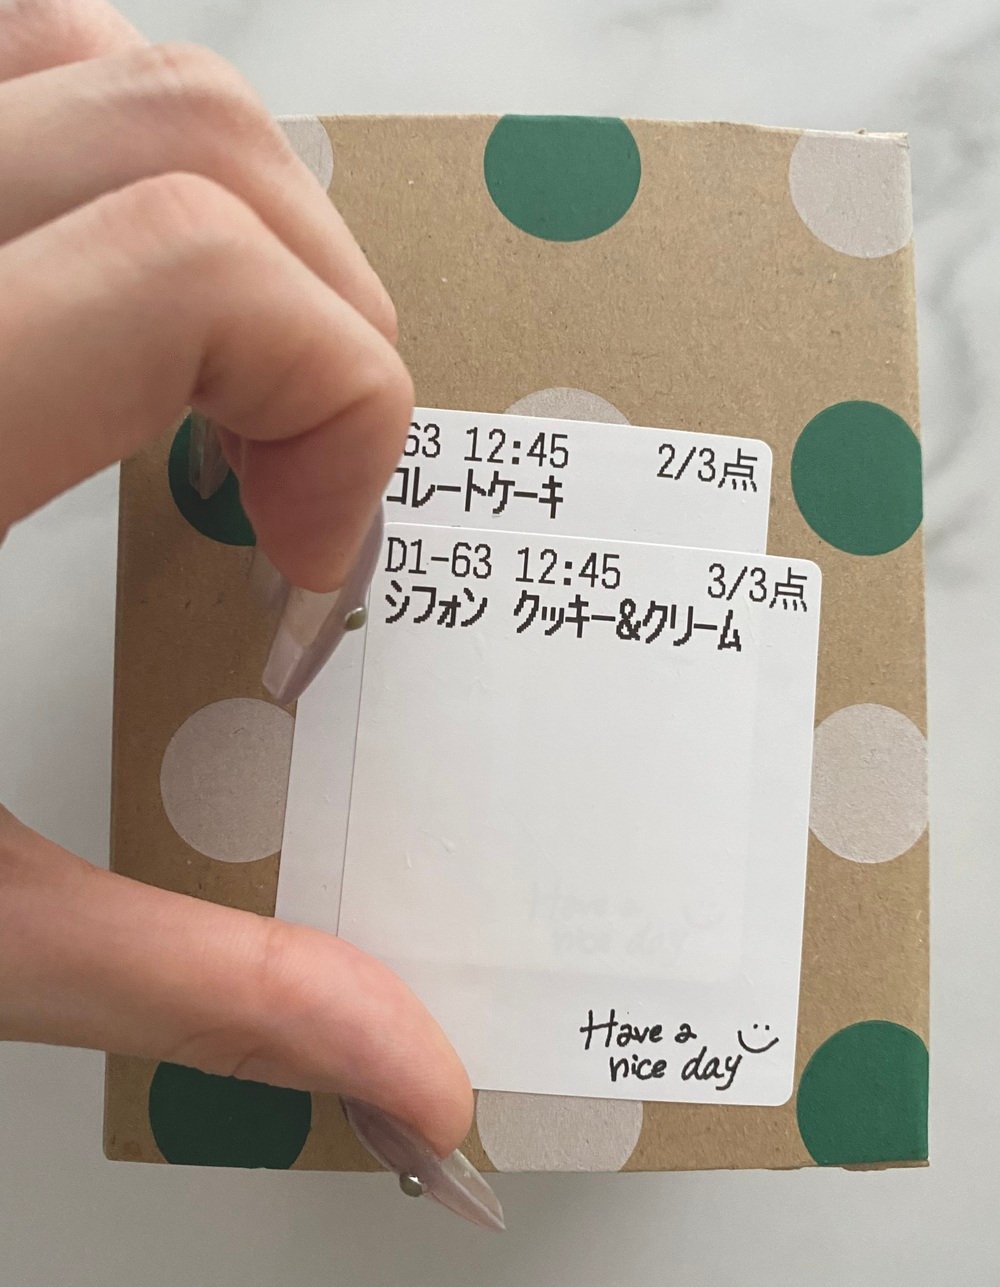 63 12:45 2/3点
コレートケーキ
D1-63 12:45 3/3点
シフォン クッキー&クリーム
Have a
nice day
Have a
nice day